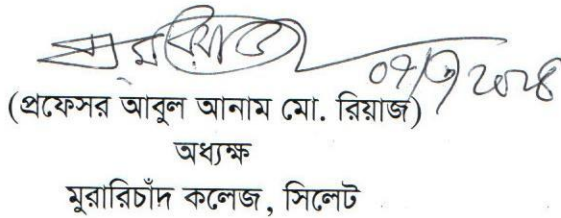 (প্রফেসর আবুল আনাম মো. রিয়াজ)
অধ্যক্ষ
মুরারিচাঁদ কলেজ, সিলেট